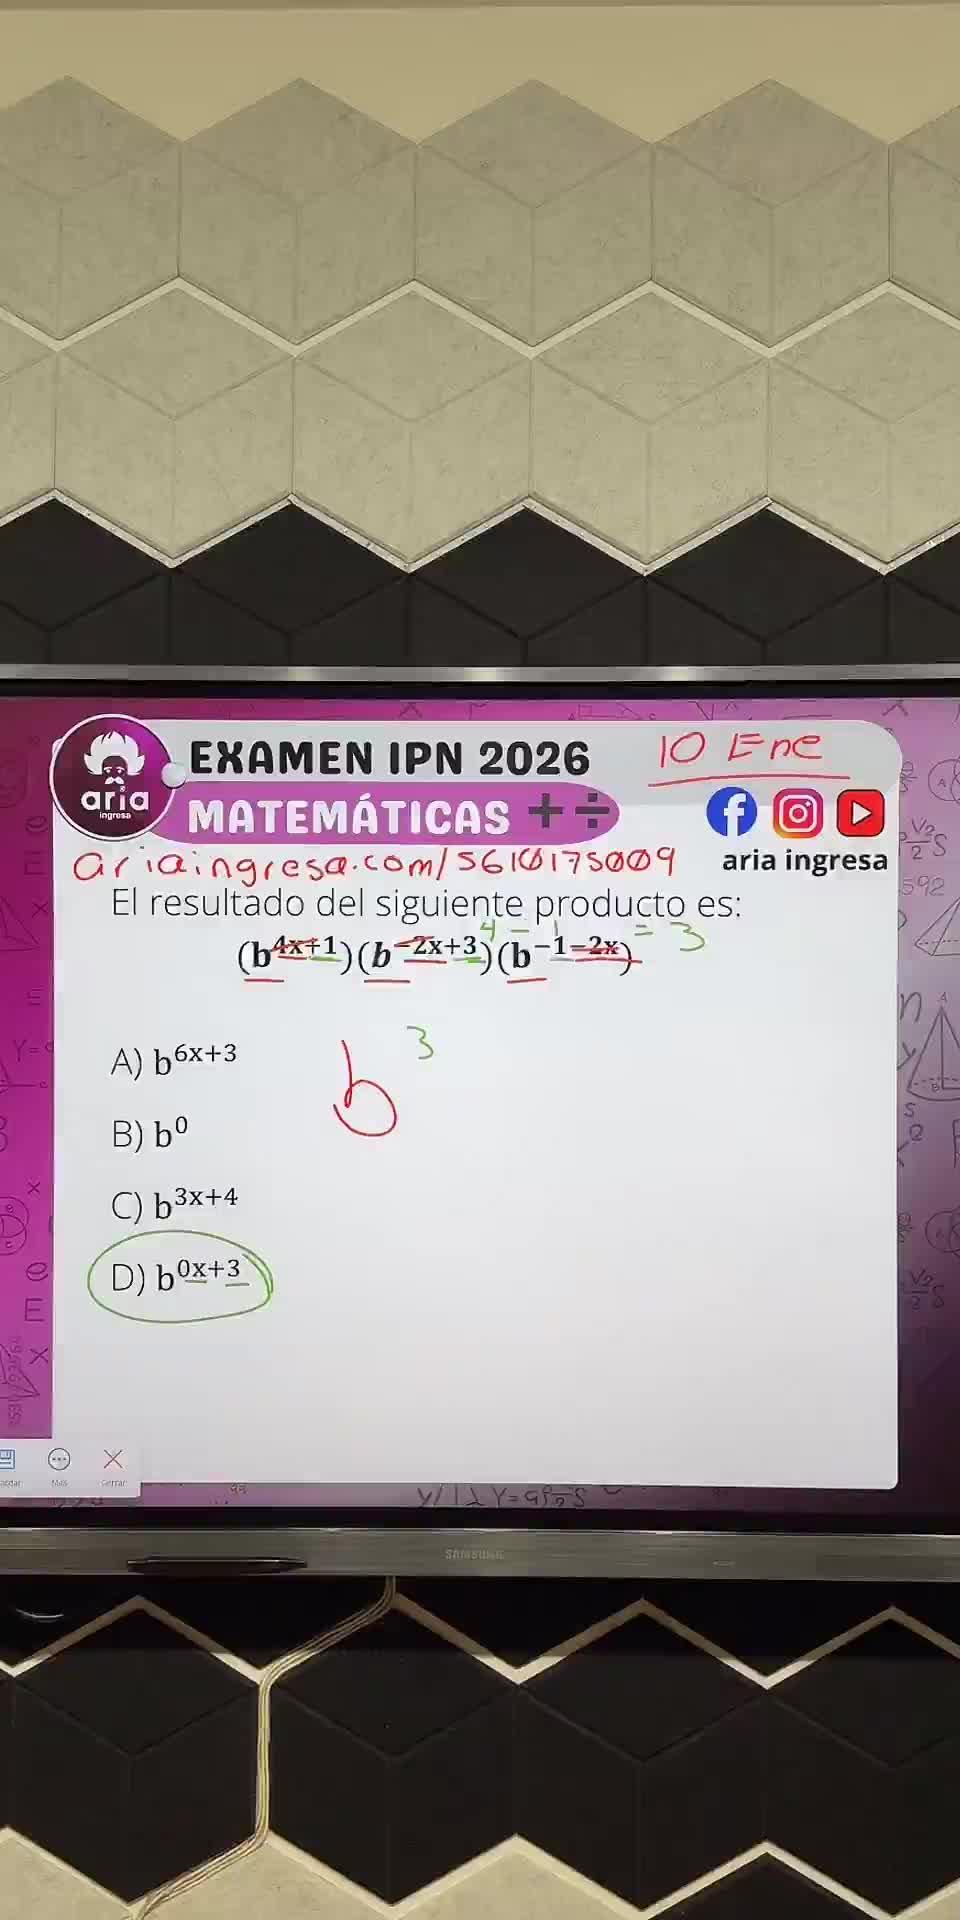 EXAMEN IPN 2026
10 Ene
aria
ingresa
MATEMÁTICAS + ÷
aria ingresa
ariaingresa.com/5610175009
El resultado del siguiente producto es:
4 - 1 = 3
(b^4x+1)(b^-2x+3)(b^-1-2x)
A) b^6x+3
b^3
B) b^0
C) b^3x+4
D) b^0x+3
Más
Cerrar
SAMSUNG